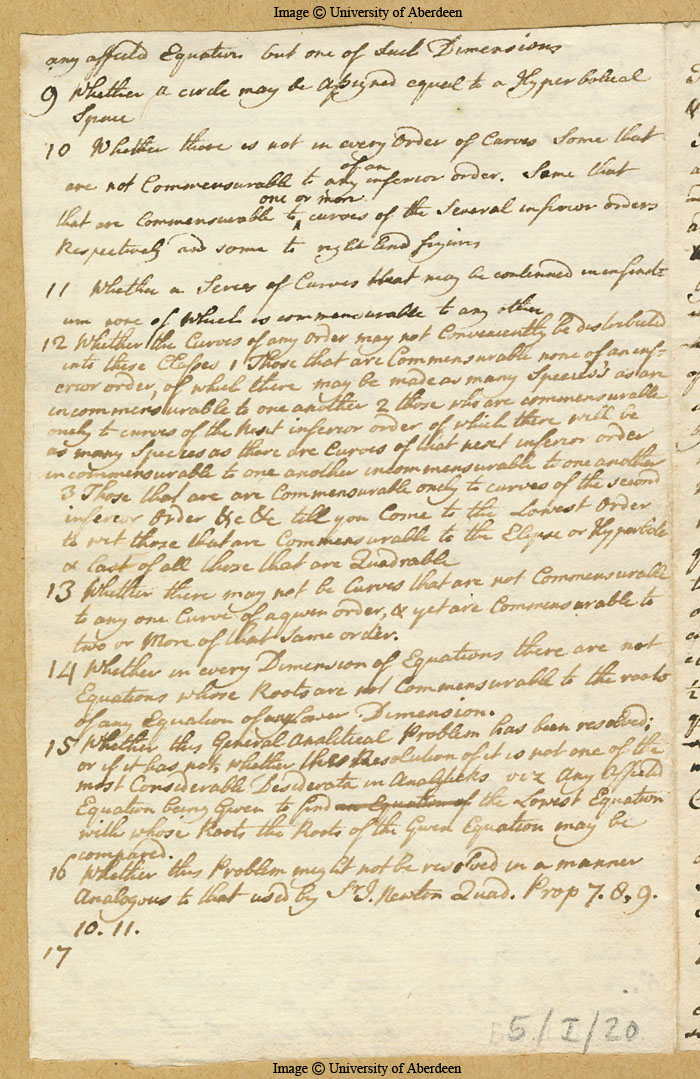 Image © University of Aberdeen
any affectd Equation but one of such Dimensions
9 Whether a circle may be assigned equal to a Hyperbolical
Space
10 Whether there is not in every Order of Curves Some that
are not Commensurable to any of an inferior order. Some that
that are Commensurable to one or more curves of the Several inferior orders
Respectively and some to right lind figures
11 Whether a Series of Curves that may be continued in infinit=
um none of which is commensurable to any other
12 Whether the Curves of any Order may not Conveniently be distributed
into these Classes 1 Those that are Commensurable none of an inf-
erior order, of which there may be made as many Species's as are
incommensurable to one another 2 those who are commensurable
onely to curves of the next inferior order of which there will be
as many Species as there are Curves of that next inferior order
incommensurable to one another incommensurable to one another
3 Those that are are Commensurable onely to curves of the second
inferior Order &c &c till you Come to the Lowest Order
to wit those that are Commensurable to the Elipse or Hyperbola
& Last of all those that are Quadrable
13 Whether there may not be Curves that are not Commensurable
to any one Curve of a given order, & yet are Commensurable to
two or More of that same order.
14 Whether in every Dimension of Equations there are not
Equations whose Roots are not Commensurable to the roots
of any Equation of any lower Dimension.
15 Whether this General Analitical Problem has been resolved;
or if it has not, whether the Resolution of it is not one of the
most Considerable Desiderata in Analyticks viz Any Affectd
Equation being Given to find an Equation of the Lowest Equation
with whose Roots the Roots of the Given Equation may be
compared.
16 Whether this Problem might not be resolved in a manner
Analogous to that used by Sr I. Newton Quad. Prop 7. 8, 9.
10. 11.
17
5/I/20
Image © University of Aberdeen